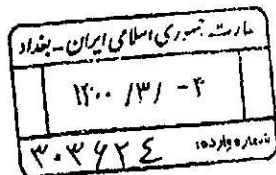 سفارت جمهوری اسلامی ایران - بغداد
۱۴۰۰ /۳/ -۴
شماره وارده: ۳۰۳۶۲٤